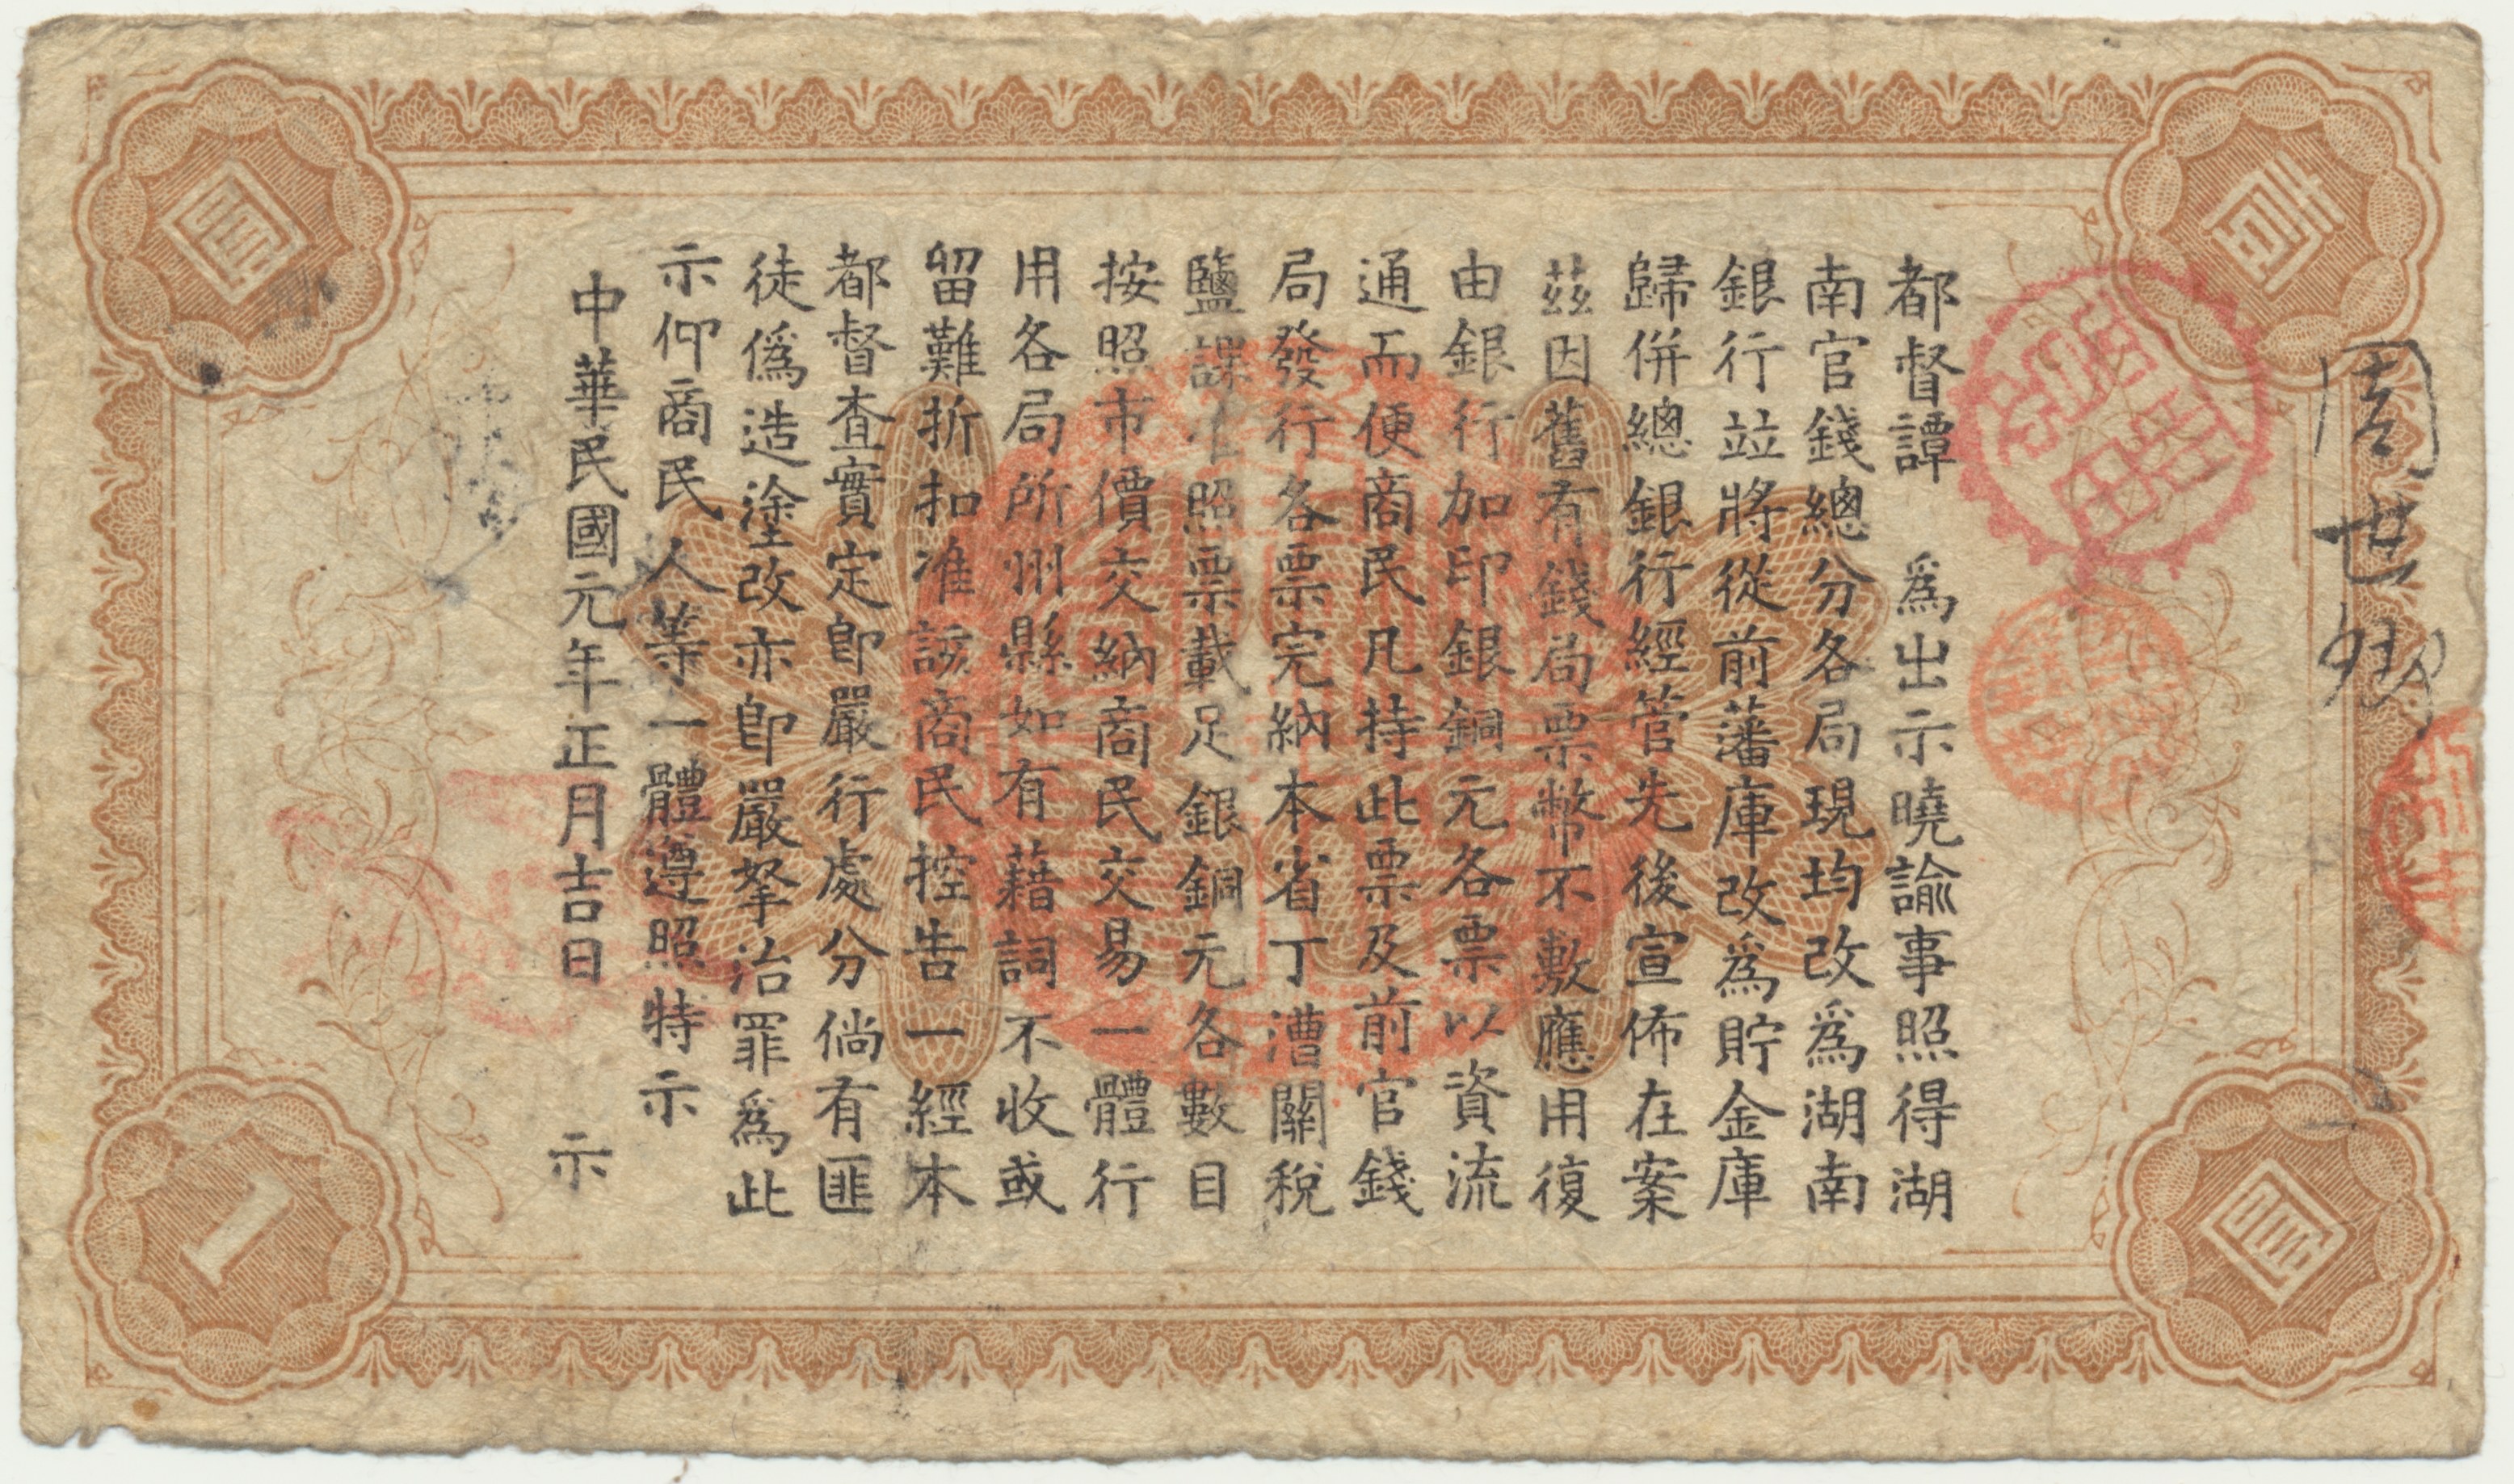 壹
圓
都督譚 爲出示曉諭事照得湖
南官錢總分各局現均改爲湖南
銀行竝將從前藩庫改爲貯金庫
歸併總銀行經管先後宣佈在案
茲因舊有錢局票幣不敷應用復
由銀行加印銀銅元各票以資流
通而便商民凡持此票及前官錢
局發行各票完納本省丁漕關稅
鹽課准照票載足銀銅元各數目
按照市價交納商民交易一體行
用各局所州縣如有藉詞不收或
留難折扣准該商民控告一經本
都督查實定卽嚴行處分倘有匪
徒僞造塗改亦卽嚴拏治罪爲此
示仰商民人等一體遵照特示
中華民國元年正月吉日 示
圓
1